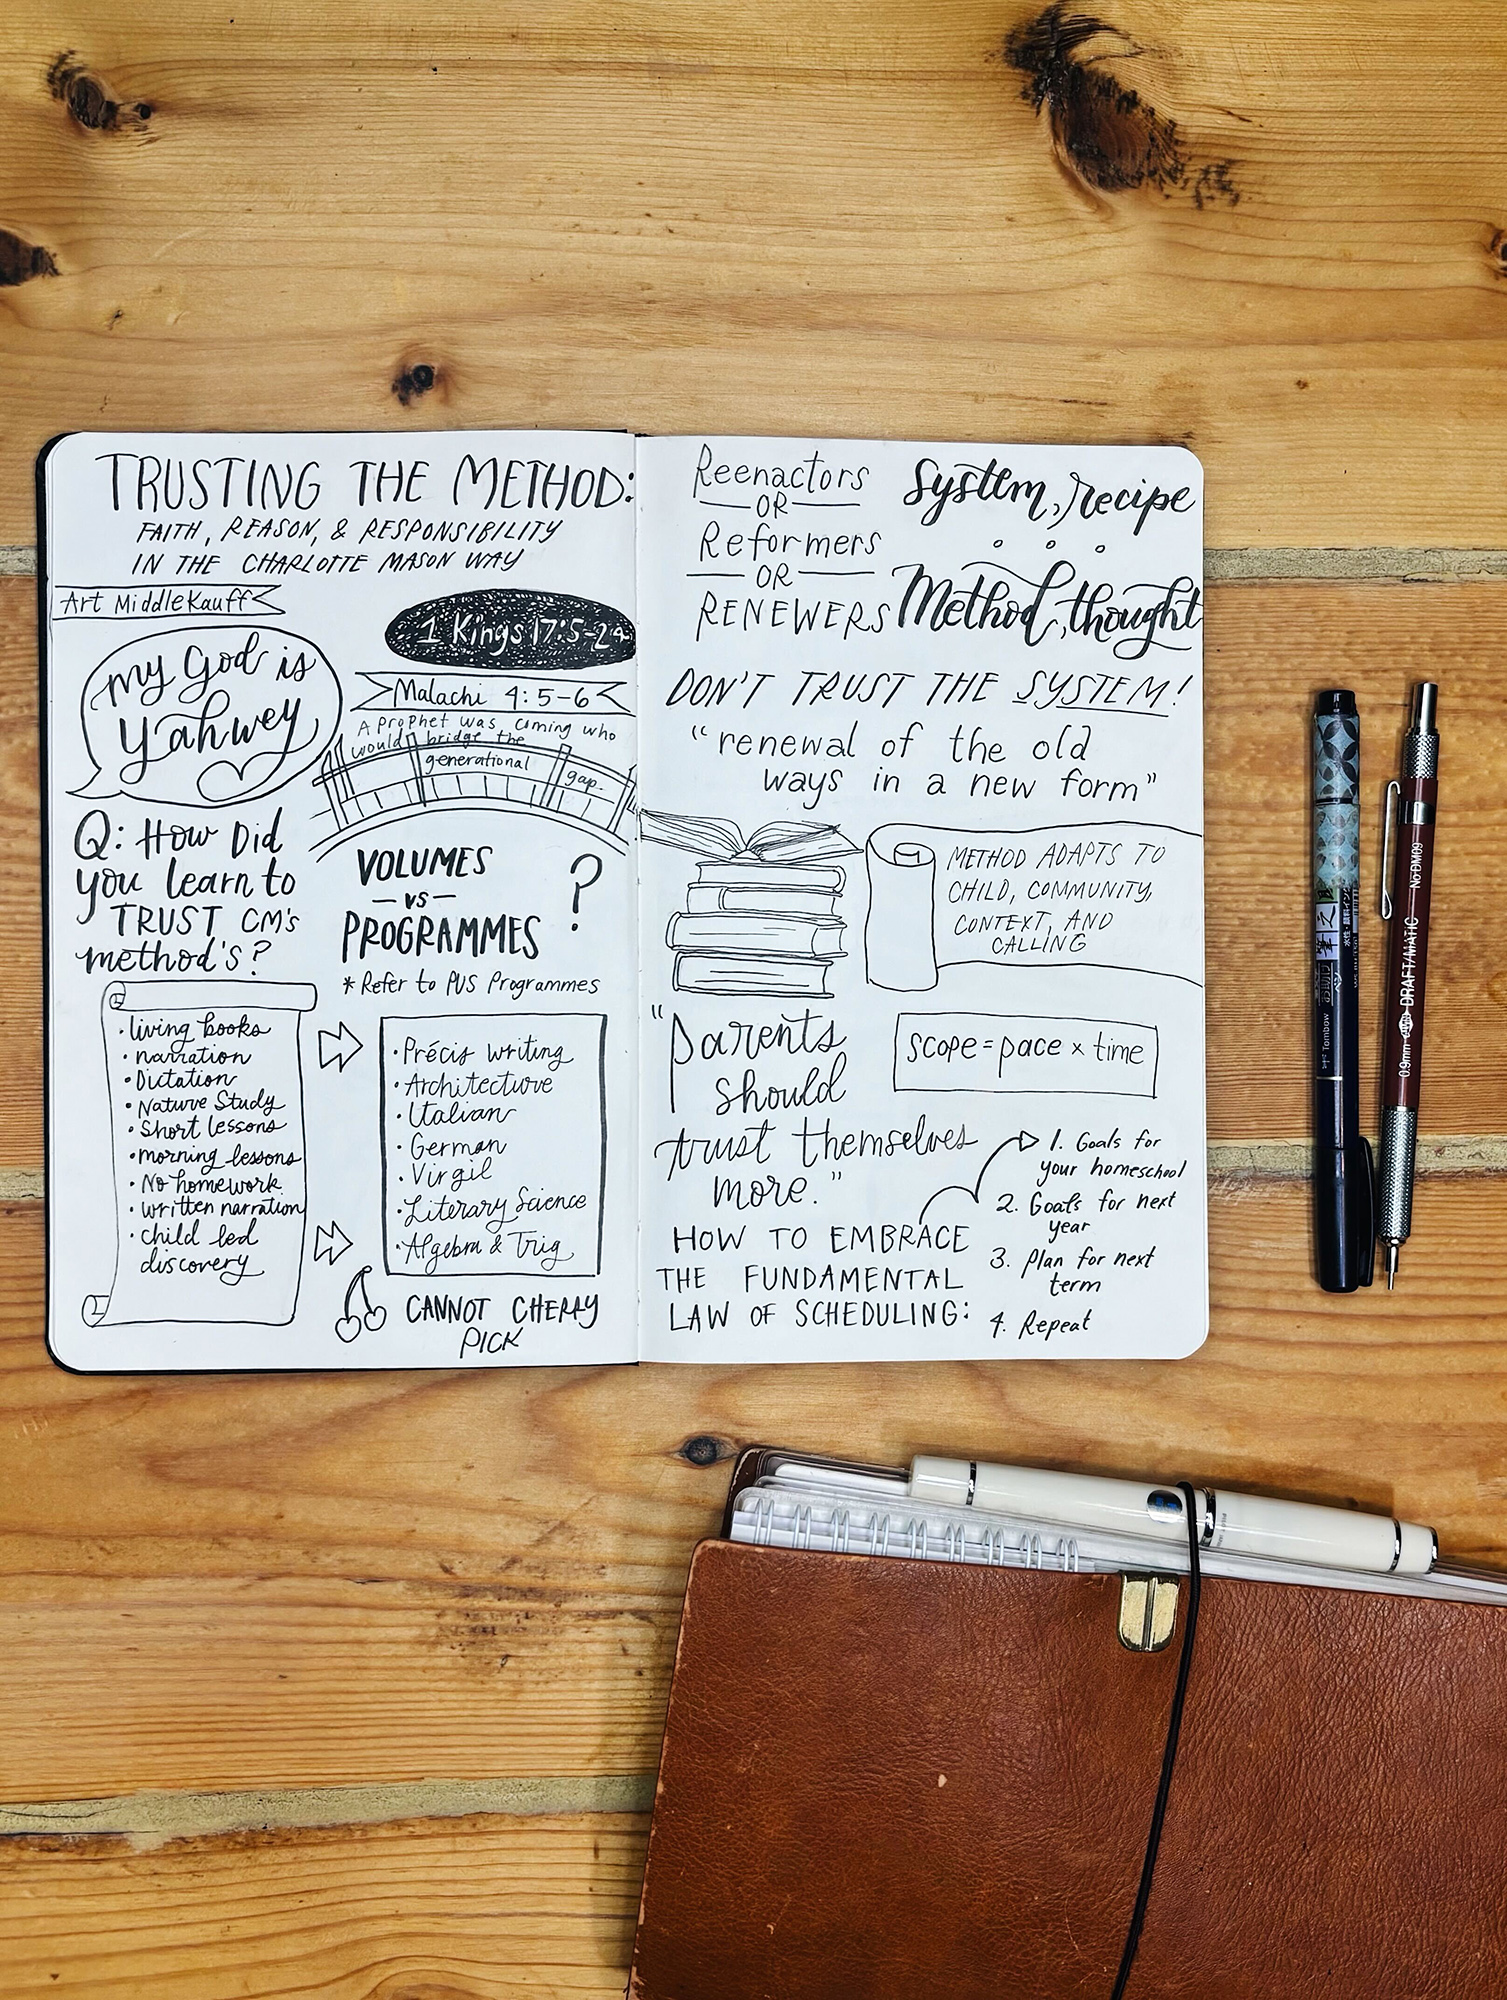 TRUSTING THE METHOD:
FAITH, REASON, & RESPONSIBILITY
IN THE CHARLOTTE MASON WAY
Art Middlekauff
1 Kings 17:5-24
My God is
Yahwey
Malachi 4:5-6
A Prophet was coming who
would bridge the
generational
gap.
Q: How Did
you learn to
TRUST CM's
method's?
VOLUMES
-vs-
PROGRAMMES
?
*Refer to PUS Programmes
• living books
• narration
• Dictation
• Nature Study
• Short lessons
• morning lessons
• No homework
• written narration
• child led
discovery
• Précis writing
• Architecture
• Italian
• German
• Virgil
• Literary Science
• Algebra & Trig
CANNOT CHERRY
PICK
Reenactors
—OR—
Reformers
—OR—
RENEWERS
System, recipe
Method, thought
DON'T TRUST THE SYSTEM!
"renewal of the old
ways in a new form"
METHOD ADAPTS TO
CHILD, COMMUNITY,
CONTEXT, AND
CALLING
"Parents
should
trust themselves
more."
scope = pace x time
HOW TO EMBRACE
THE FUNDAMENTAL
LAW OF SCHEDULING:
1. Goals for
your homeschool
2. Goals for next
year
3. Plan for next
term
4. Repeat
Tombow
0.9mm DRAFT/MATIC No.DM09